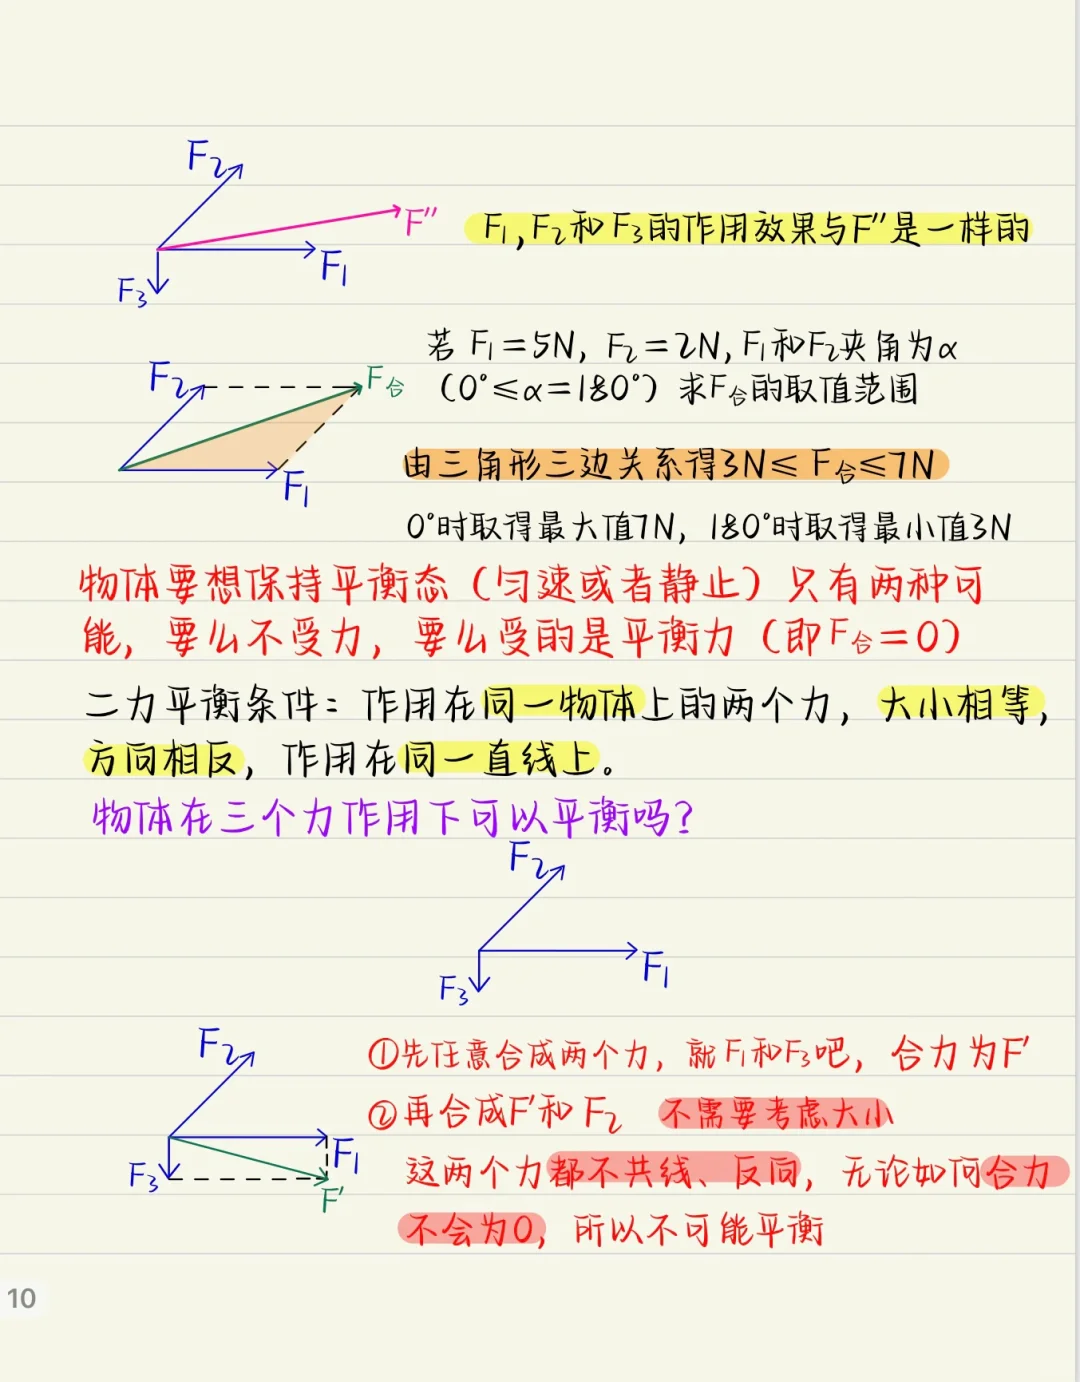 F₂
F″
F₁,F₂和F₃的作用效果与F″是一样的
F₁
F₃
若F₁=5N, F₂=2N, F₁和F₂夹角为α
(0°≤α=180°) 求F合的取值范围
F₂
F合
F₁
由三角形三边关系得3N≤F合≤7N
0°时取得最大值7N, 180°时取得最小值3N
物体要想保持平衡态(匀速或者静止)只有两种可
能, 要么不受力, 要么受的是平衡力(即F合=0)
二力平衡条件: 作用在同一物体上的两个力, 大小相等,
方向相反, 作用在同一直线上。
物体在三个力作用下可以平衡吗?
F₂
F₁
F₃
F₂
F₁
F₃
F′
①先任意合成两个力, 就F₁和F₃吧, 合力为F′
②再合成F′和F₂ 不需要考虑大小
这两个力都不共线、反向, 无论如何合力
不会为0, 所以不可能平衡
10